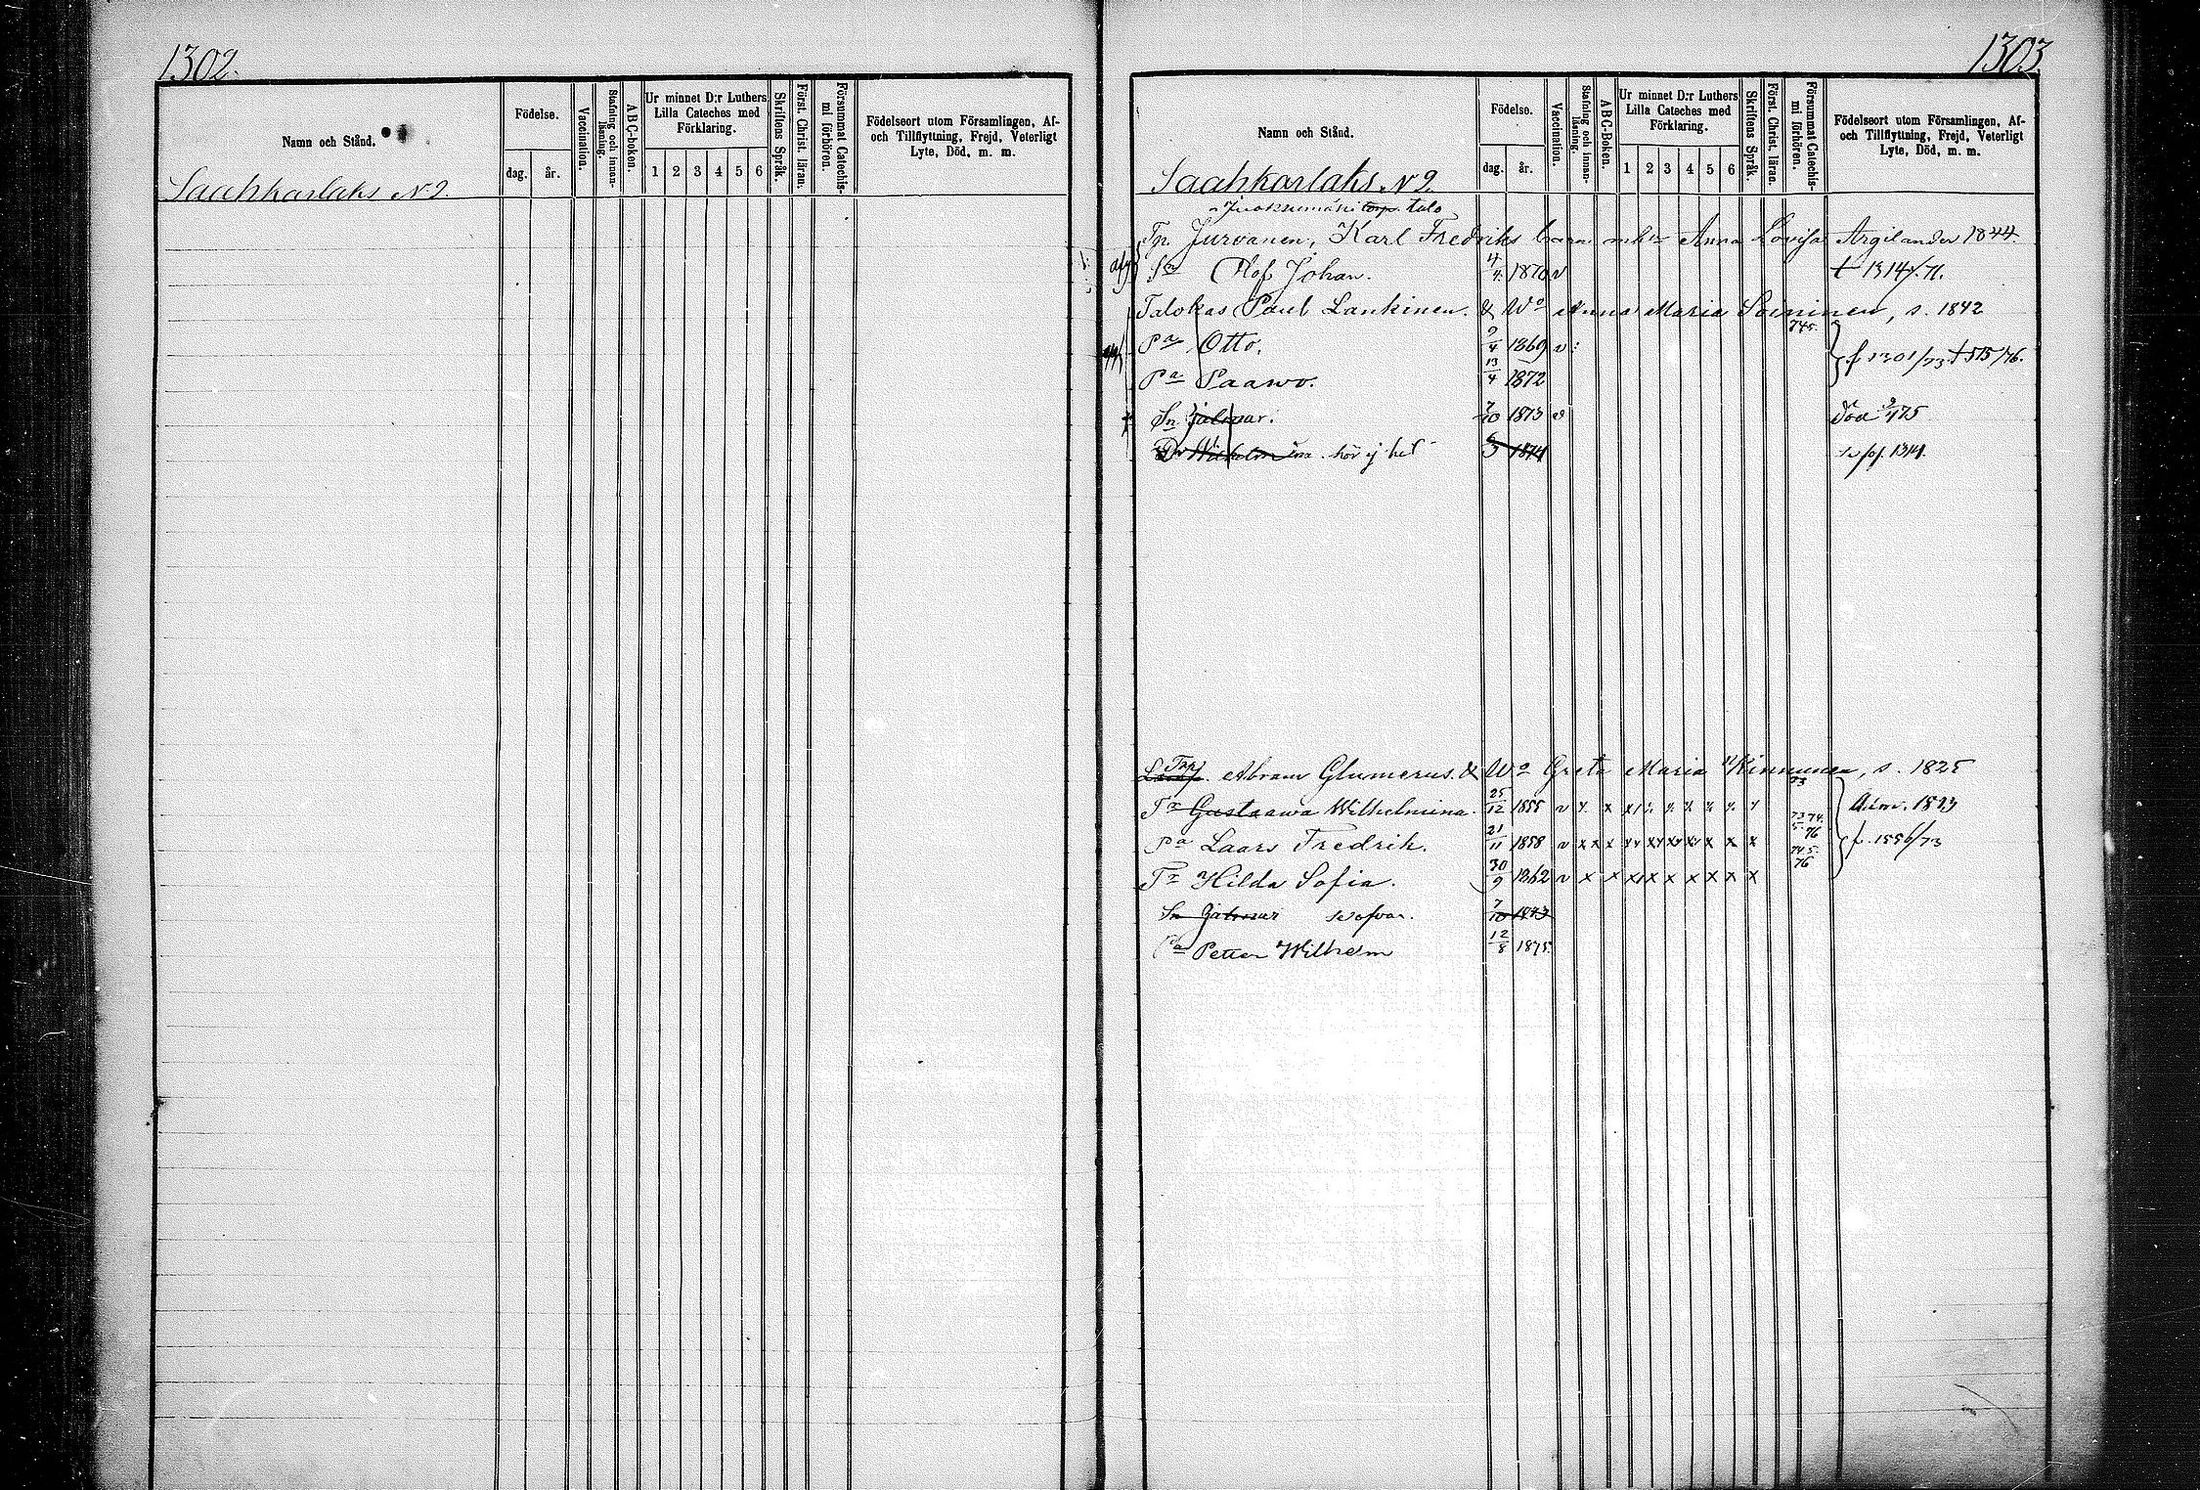 1302.
Namn och Stånd.
Födelse.
dag.
år.
Vaccination.
Stafning och innan-läsning.
ABC-boken.
Ur minnet D:r Luthers
Lilla Cateches med
Förklaring.
1 2 3 4 5 6
Skriftens Språk.
Först. Christ. läran.
Försummat Catechis-mi förhören.
Födelseort utom Församlingen, Af-
och Tillflyttning, Frejd, Veterligt
Lyte, Död, m. m.
Saahkarlaks N 2.
1303
Namn och Stånd.
Födelse.
dag.
år.
Vaccination.
Stafning och innan-läsning.
ABC-Boken.
Ur minnet D:r Luthers
Lilla Cateches med
Förklaring.
1 2 3 4 5 6
Skriftens Språk.
Först. Christ. läran.
Försummat Catechis-mi förhören.
Födelseort utom Församlingen, Af-
och Tillflyttning, Frejd, Veterligt
Lyte, Död, m. m.
Saahkarlaks N 2.
torp. talo
Tp Jurvanen, Karl Fredriks barn Anna Lovisa Argilander 1844.
Sn Olof Johan. 4/4 1870 v
Talokas Paul Lankinen. & Wo Anna Maria Soininen, s. 1842
Pa Otto. 9/4 1869 v 745. f 1301/73 + 515/76.
Pa Paawo. 13/4 1872
Sn Jalmar. 7/10 1873 v död
Dr Wilhelmina. hör ej hit 1874 1314.
Torp. Abram Glumerus. & Wo Greta Maria Kinnunen, s. 1825
Tr Gustaawa Wilhelmina. 25/12 1855 v 73
Pa Laars Fredrik. 21/11 1858 v x x x x x x 73 74. 5 76 f. 1556/73
Tr Hilda Sofia. 30/9 1862 v x x x x x x x x x 74 5. 76
Sn Jalmar 7/10 1873
Pa Petter Wilhelm 12/8 1875.